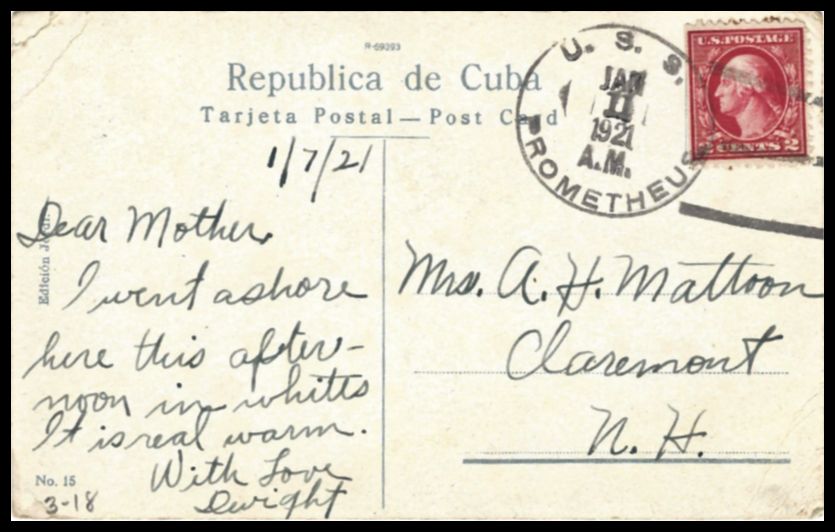 R-69093
Republica de Cuba
Tarjeta Postal — Post Card
U. S. S. PROMETHEUS
JAN
11
1921
A.M.
U.S. POSTAGE
2 CENTS 2
1/7/21
Dear Mother,
I went ashore
here this after-
noon in whites
It is real warm.
With Love
Dwight
Mrs. A. H. Mattoon
Claremont
N. H.
Edición
No. 15
3-18